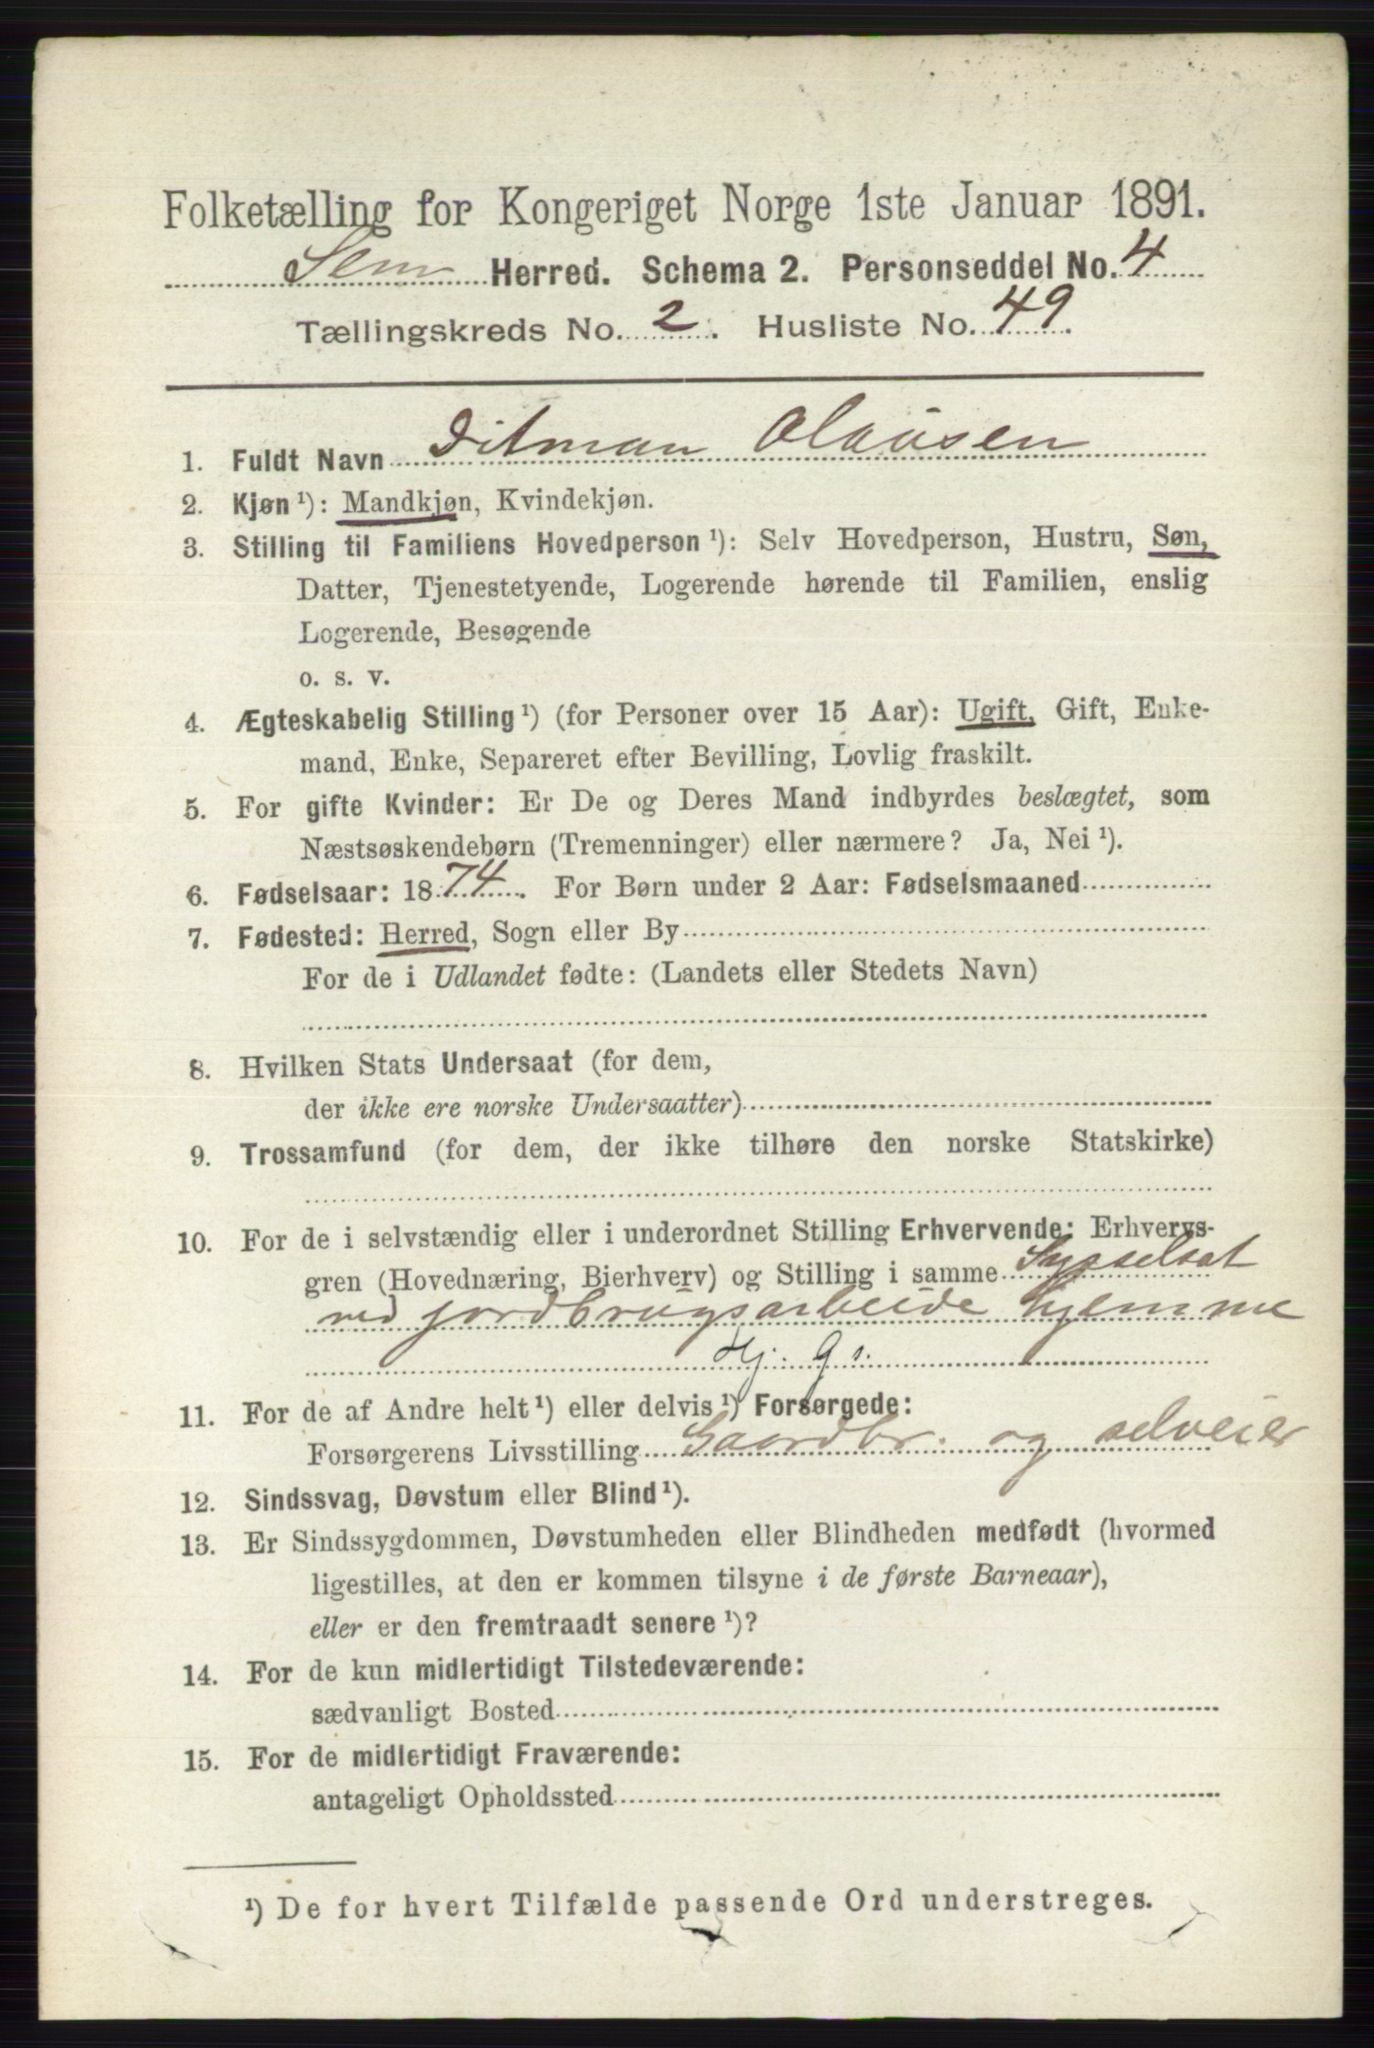 Folketælling for Kongeriget Norge 1ste Januar 1891.
Sem Herred. Schema 2. Personseddel No. 4
Tællingskreds No. 2. Husliste No. 49.
1. Fuldt Navn Ditman Olausen
2. Kjøn ¹): Mandkjøn, Kvindekjøn.
3. Stilling til Familiens Hovedperson ¹): Selv Hovedperson, Hustru, Søn,
Datter, Tjenestetyende, Logerende hørende til Familien, enslig
Logerende, Besøgende
o. s. v.
4. Ægteskabelig Stilling ¹) (for Personer over 15 Aar): Ugift, Gift, Enke-
mand, Enke, Separeret efter Bevilling, Lovlig fraskilt.
5. For gifte Kvinder: Er De og Deres Mand indbyrdes beslægtet, som
Næstsøskendebørn (Tremenninger) eller nærmere? Ja, Nei ¹).
6. Fødselsaar: 1874. For Børn under 2 Aar: Fødselsmaaned
7. Fødested: Herred, Sogn eller By
For de i Udlandet fødte: (Landets eller Stedets Navn)
8. Hvilken Stats Undersaat (for dem,
der ikke ere norske Undersaatter)
9. Trossamfund (for dem, der ikke tilhøre den norske Statskirke)
10. For de i selvstændig eller i underordnet Stilling Erhvervende: Erhvervs-
gren (Hovednæring, Bierhverv) og Stilling i samme Sysselsat
ved jordbrugsarbeide hjemme
Hj. g s.
11. For de af Andre helt ¹) eller delvis ¹) Forsørgede:
Forsørgerens Livsstilling Gaardbr. og selveier
12. Sindssvag, Døvstum eller Blind ¹).
13. Er Sindssygdommen, Døvstumheden eller Blindheden medfødt (hvormed
ligestilles, at den er kommen tilsyne i de første Barneaar),
eller er den fremtraadt senere ¹)?
14. For de kun midlertidigt Tilstedeværende:
sædvanligt Bosted
15. For de midlertidigt Fraværende:
antageligt Opholdssted
¹) De for hvert Tilfælde passende Ord understreges.